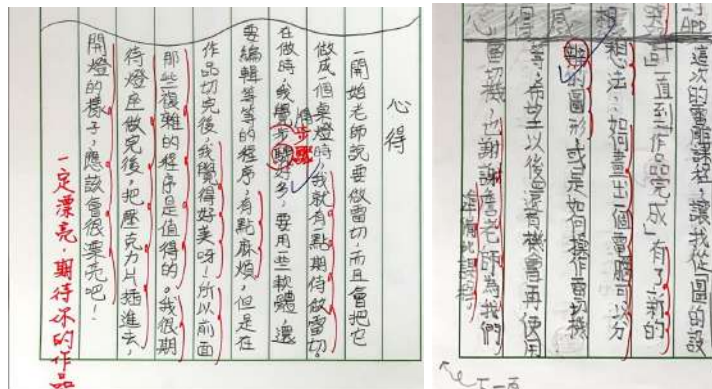 心得
一開始老師說要做雷切,而且會把它
做成個桌燈時,我就有一點期待做雷切。
在做時,我覺得步驟好多,要用些軟體,還
要編輯等等的程序,有點麻煩,但是在
作品切完後,我覺得好美呀!所以前面
那些複雜的程序是值得的。我很期
待燈座做完後,把壓克力片插進去,
開燈的樣子,應該會很漂亮吧!
一定漂亮,期待你的作品
這次的電腦課程,讓我從圖的設
計「一直到作品完成」有了新的
想法,如何畫出一個電腦可以分
辨的圖形,或是如何操作雷切機
等,希望以後還有機會再使用
雷切機,也謝謝老師為我們
下一頁